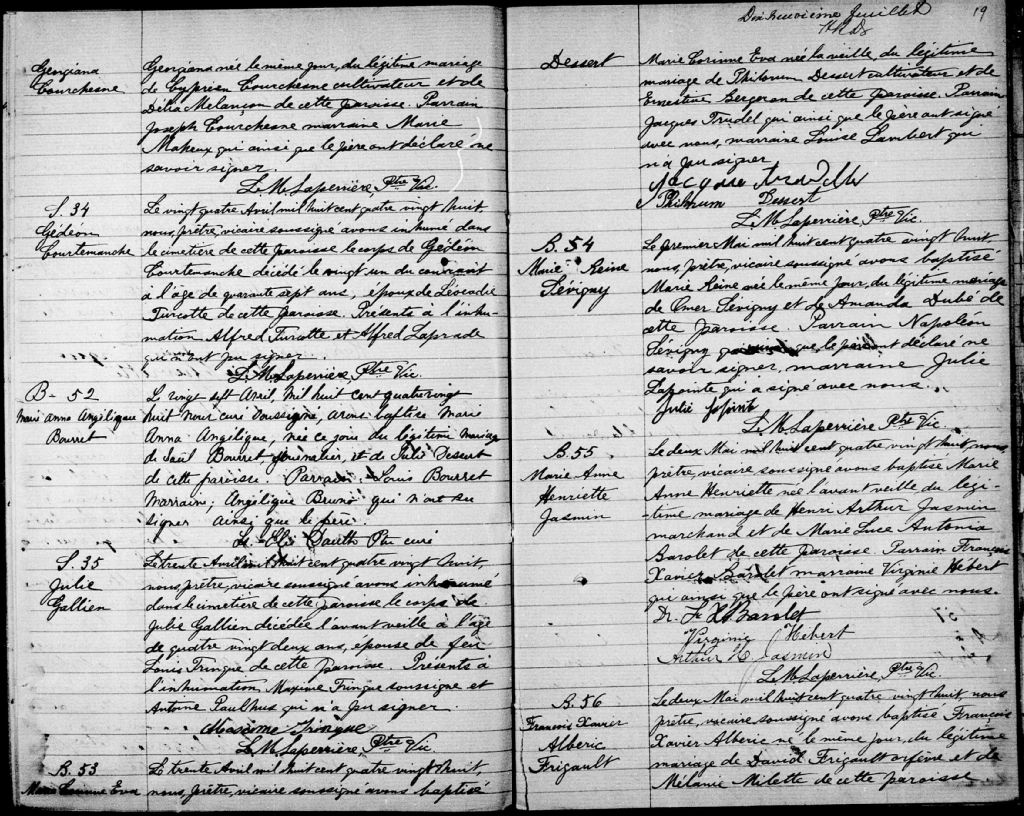 Georgiana
Courchesne
Georgiana née le même jour, du légitime mariage
de Cyprien Courchesne cultivateur et de
Délia Melançon de cette paroisse. Parrain
Joseph Courchesne marraine Marie
qui ainsi que le père ont déclaré ne
savoir signer.
L. M. Laperrière, Ptre Vic.
S. 34
Gédéon
Courtemanche
Le vingt quatre Avril mil huit cent quatre vingt huit,
nous, prêtre, vicaire soussigné avons inhumé dans
le cimetière de cette paroisse le corps de Gédéon
Courtemanche décédé le vingt un du courant
à l'âge de quarante sept ans, époux de Léocadie
Turcotte de cette paroisse. Présents à l'inhu-
mation Alfred Turcotte et Alfred Laprade
qui n'ont pu signer.
L. M. Laperrière Ptre Vic.
B- 52
Marie Anna Angélique
Bourret
Le vingt sept Avril, mil huit cent quatre vingt
huit Nous curé soussigné, avons baptisé Marie
Anna Angélique, née ce jour du légitime mariage
de Saül Bourret, journalier, et de Julie Dessert
de cette paroisse. Parrain, Louis Bourret
Marraine, Angélique Bruno qui n'ont su
signer ainsi que le père.
Ptr curé
S. 35
Julie
Gallien
Le trente Avril mil huit cent quatre vingt huit,
nous, prêtre, vicaire soussigné avons inhumé
dans le cimetière de cette paroisse le corps de
Julie Gallien décédée l'avant veille à l'âge
de quatre vingt deux ans, épouse de feu
Louis Tringue de cette paroisse. Présents à
l'inhumation Maxime Tringue soussigné et
Antoine Paulhus qui n'a pu signer.
Maxime Tringue
L. M. Laperrière, Ptre Vic.
B. 53
Marie Corinne Eva
Le trente Avril mil huit cent quatre vingt huit,
nous, prêtre, vicaire soussigné avons baptisé
Dix neuvième feuillet
19
Dessert
Marie Corinne Eva née la veille du légitime
mariage de Philorum Dessert cultivateur et de
Ernestine Bergeron de cette paroisse. Parrain
Jacques Trudel qui ainsi que le père ont signé
avec nous, marraine Louise Lambert qui
n'a pu signer.
Philorum Dessert
L. M. Laperrière, Ptre Vic.
B. 54
Marie Reine
Sévigny
Le premier Mai mil huit cent quatre vingt huit,
nous, prêtre, vicaire soussigné avons baptisé
Marie Reine née le même jour, du légitime mariage
de Omer Sévigny et de Amanda Dubé de
cette paroisse. Parrain Napoléon
Sévigny que le père ont déclaré ne
savoir signer, marraine Julie
Lapointe qui a signé avec nous.
Julie Lapointe
L. M. Laperrière Ptre Vic.
B. 55
Marie Anne
Henriette
Jasmin
Le deux Mai mil huit cent quatre vingt huit nous,
prêtre, vicaire soussigné avons baptisé Marie
Anne Henriette née l'avant veille du légi-
time mariage de Henri Arthur Jasmin
marchand et de Marie Luce Antonia
Barolet de cette paroisse. Parrain François
Xavier Barolet marraine Virginie Hébert
qui ainsi que le père ont signé avec nous.
Dr. F. X. Barolet
Virginie Hébert
Arthur H. Jasmin
L. M. Laperrière, Ptre Vic.
B. 56
François Xavier
Alberic
Frigault
Le deux Mai mil huit cent quatre vingt huit nous
prêtre, vicaire soussigné avons baptisé François
Xavier Alberic né le même jour, du légitime
mariage de David Frigault orfèvre et de
Mélanie Milette de cette paroisse